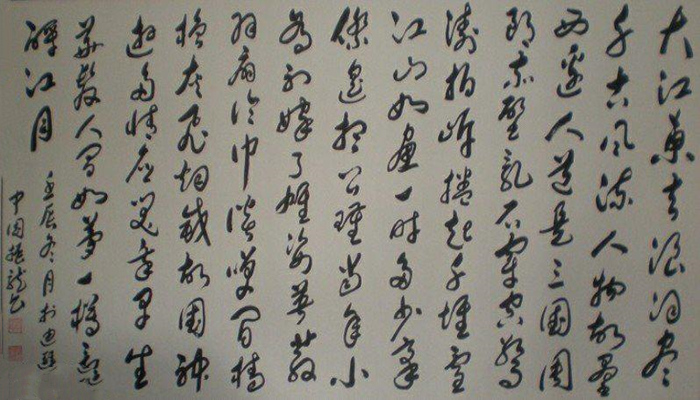 大江東去浪淘盡
千古風流人物故壘
西邊人道是三國周
郎赤壁亂石穿空驚
濤拍岸捲起千堆雪
江山如畫一時多少豪
傑遙想公瑾當年小
喬初嫁了雄姿英發
羽扇綸巾談笑間檣
櫓灰飛烟滅故國神
遊多情應笑我早生
華髮人間如夢一樽還
酹江月
壬辰冬月於迪
中國龍書